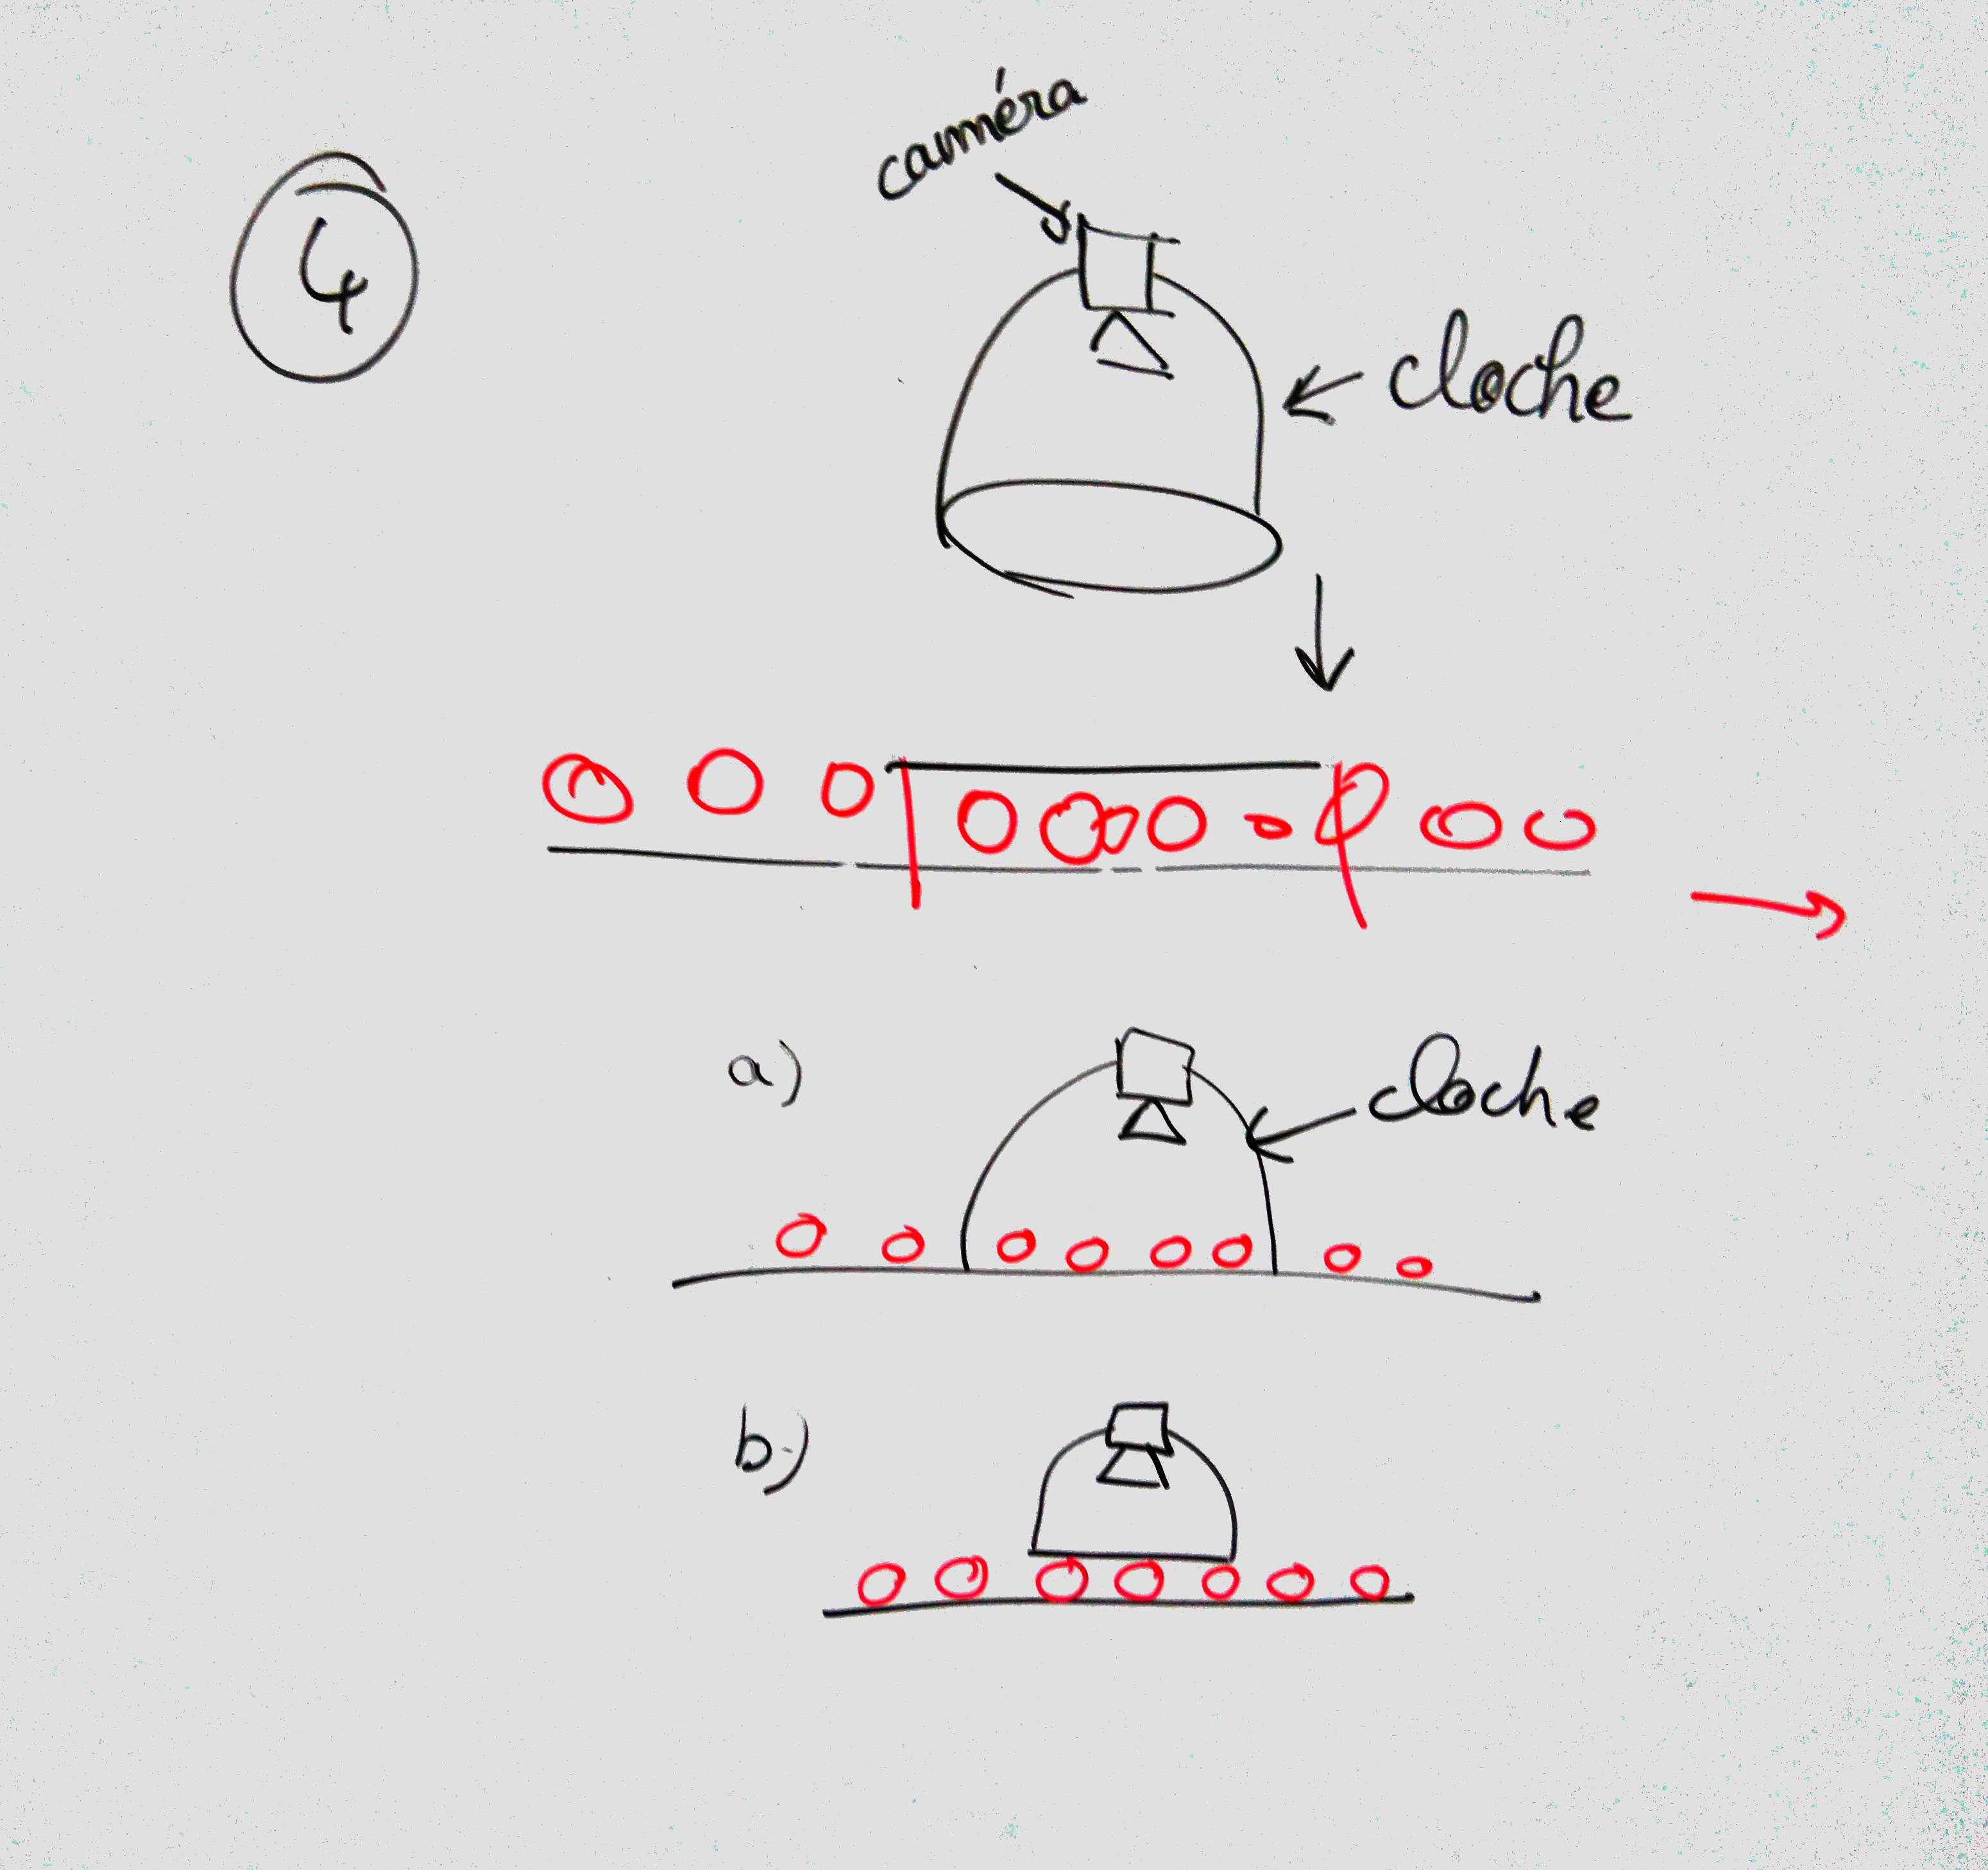 4
caméra
cloche
a)
cloche
b)